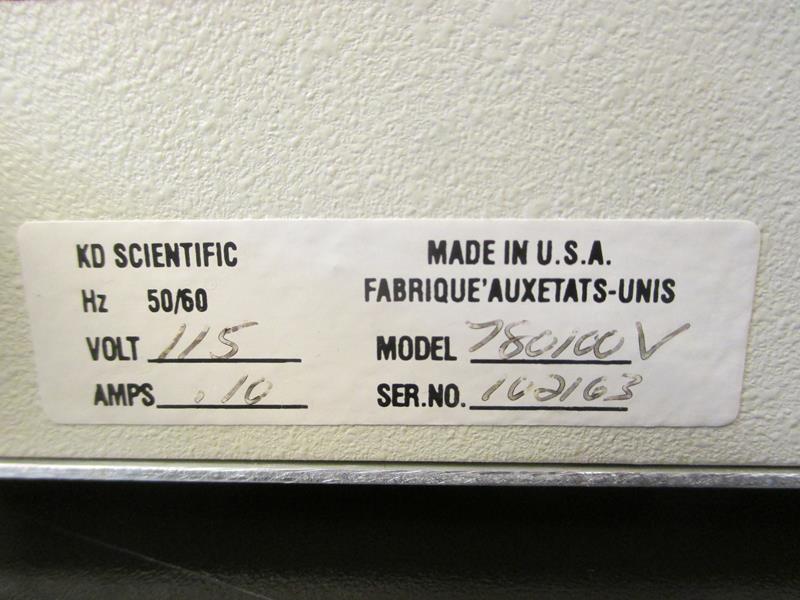 KD SCIENTIFIC
Hz 50/60
VOLT 115
AMPS .10
MADE IN U.S.A.
FABRIQUE'AUXETATS-UNIS
MODEL 780100V
SER.NO. 102163